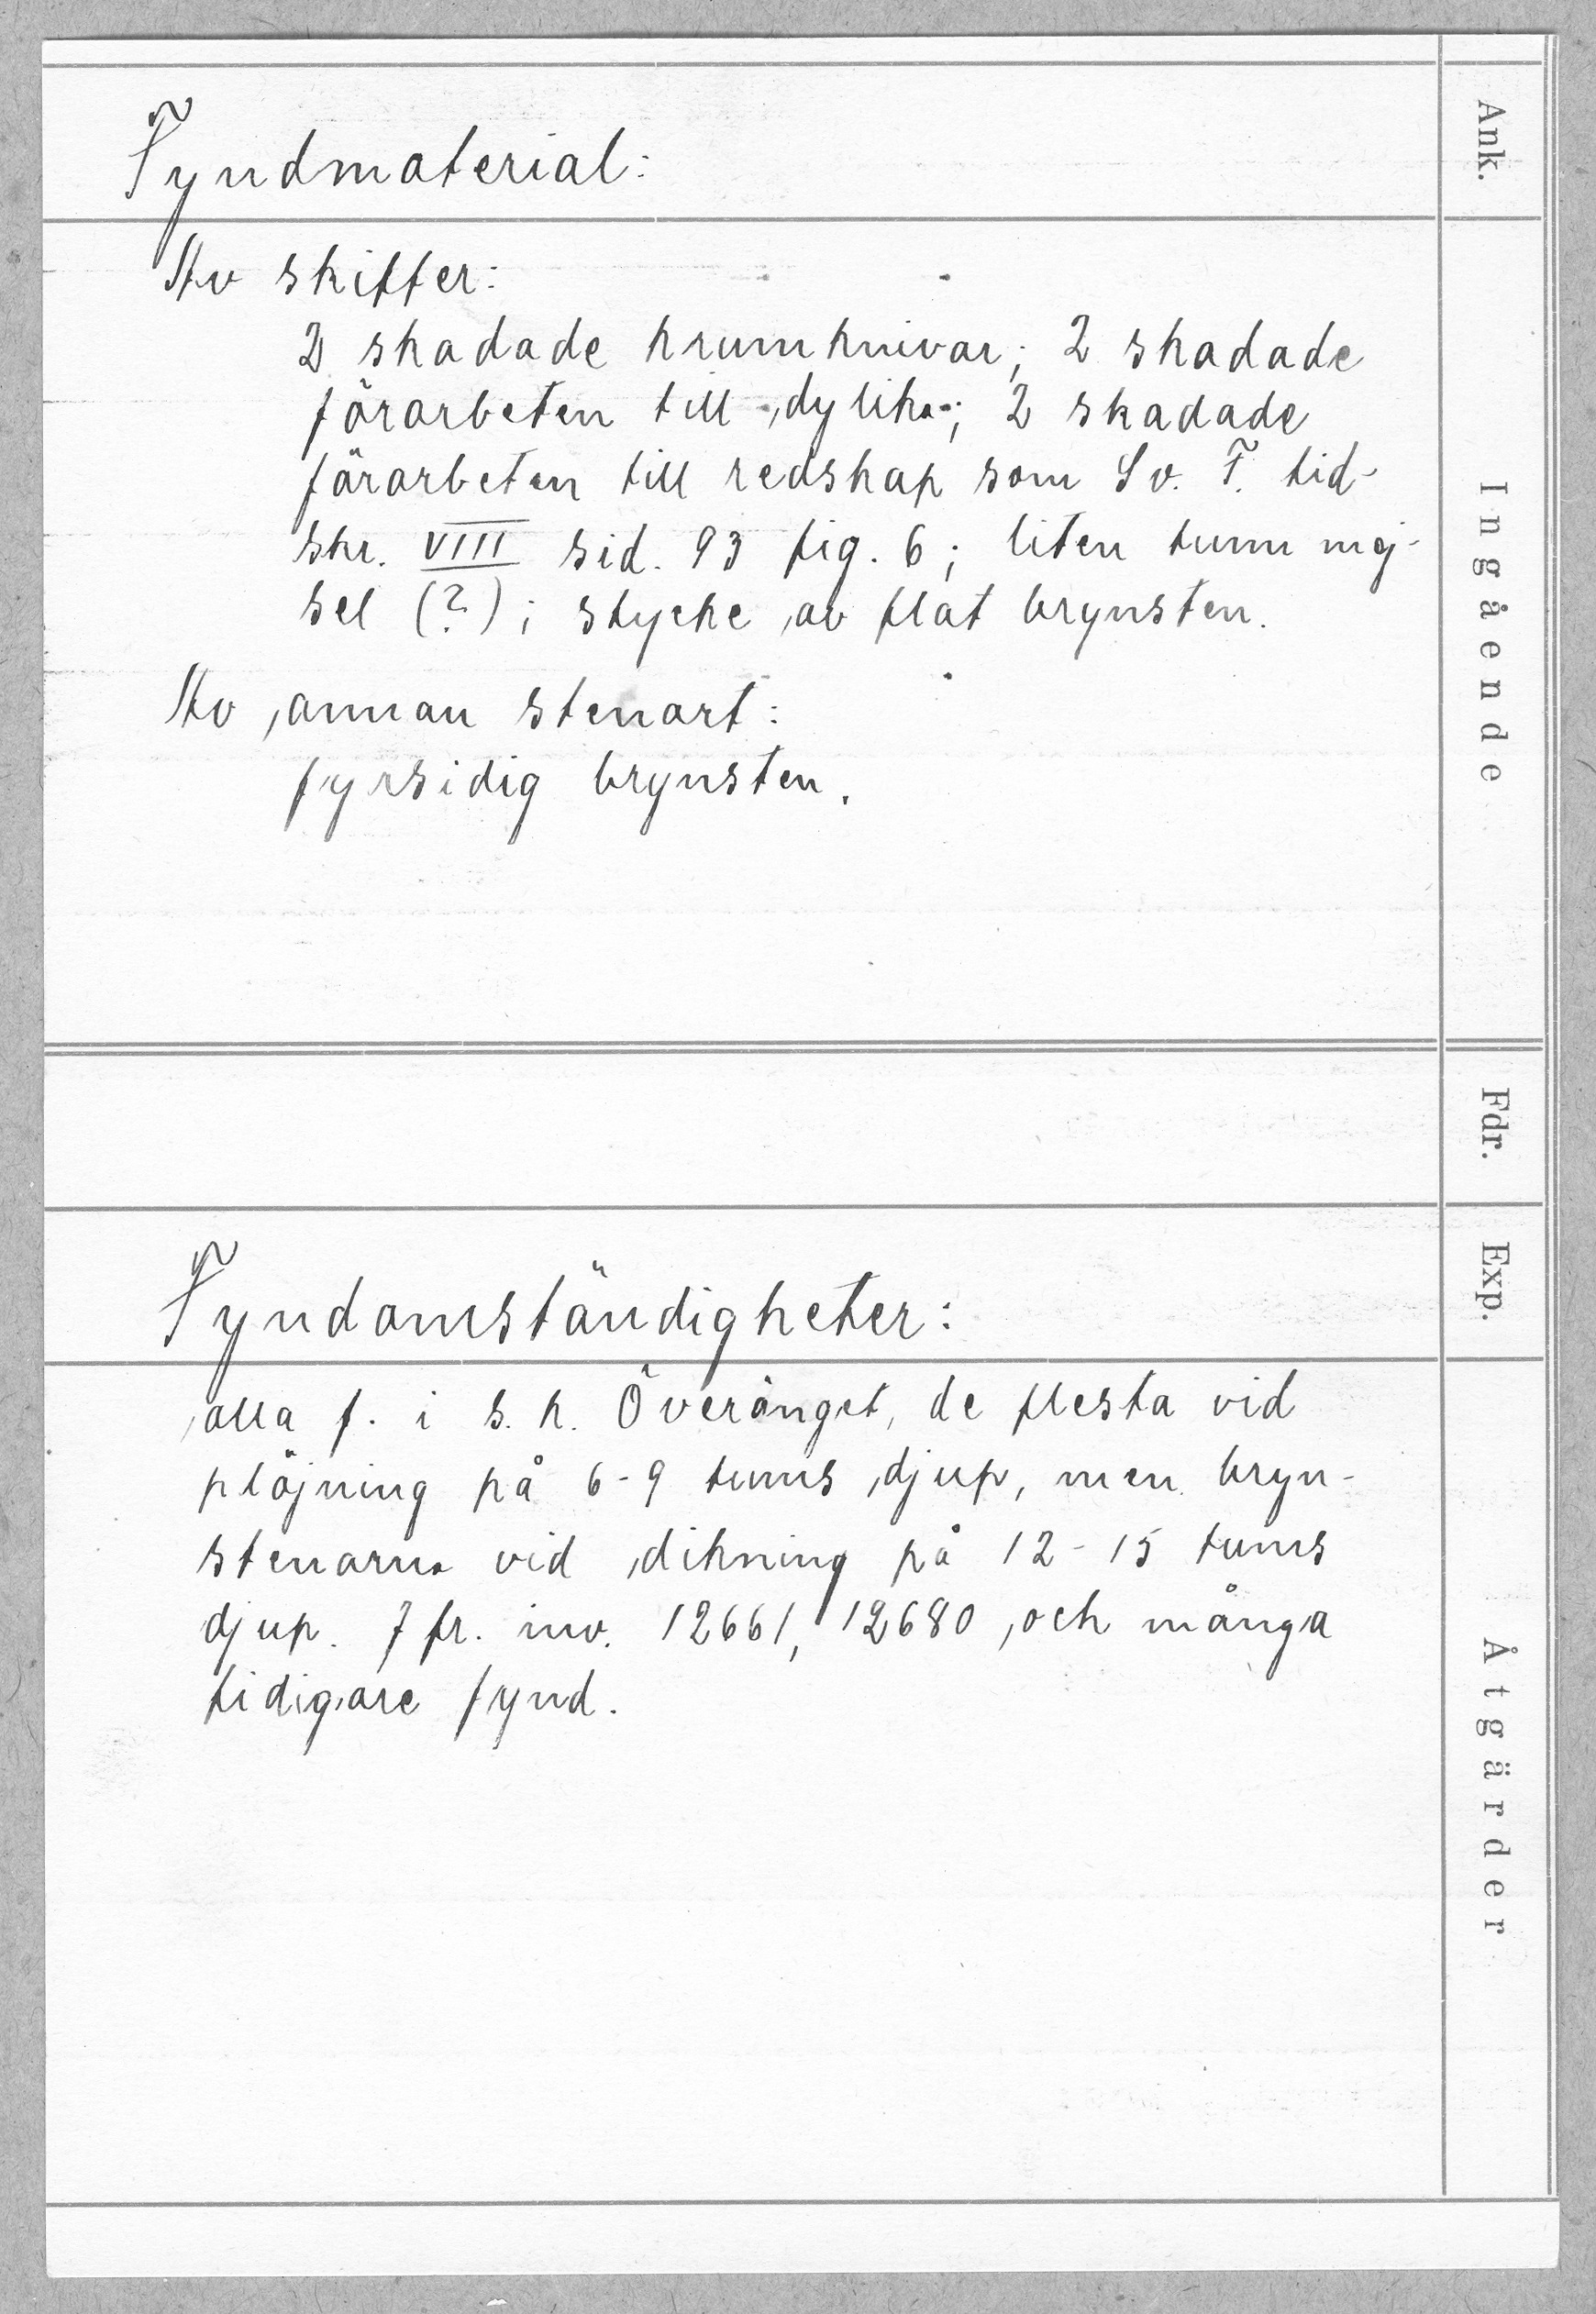 Ank.
Fyndmaterial:
Av skiffer:
2 skadade krumknivar; 2 skadade
förarbeten till dylika; 2 skadade
förarbeten till redskap som Sv. F. tid-
skr. VIII sid. 93 fig. 6; liten tunn mej-
sel (?); stycke av flat brynsten.
Av annan stenart:
fyrsidig brynsten.
Ingående
Fdr.
Exp.
Fyndomständigheter:
alla f. i s. k. Överänget, de flesta vid
plöjning på 6-9 tums djup, men bryn-
stenarna vid dikning på 12-15 tums
djup. Jfr. inv. 12661, 12680 och många
tidigare fynd.
Åtgärder